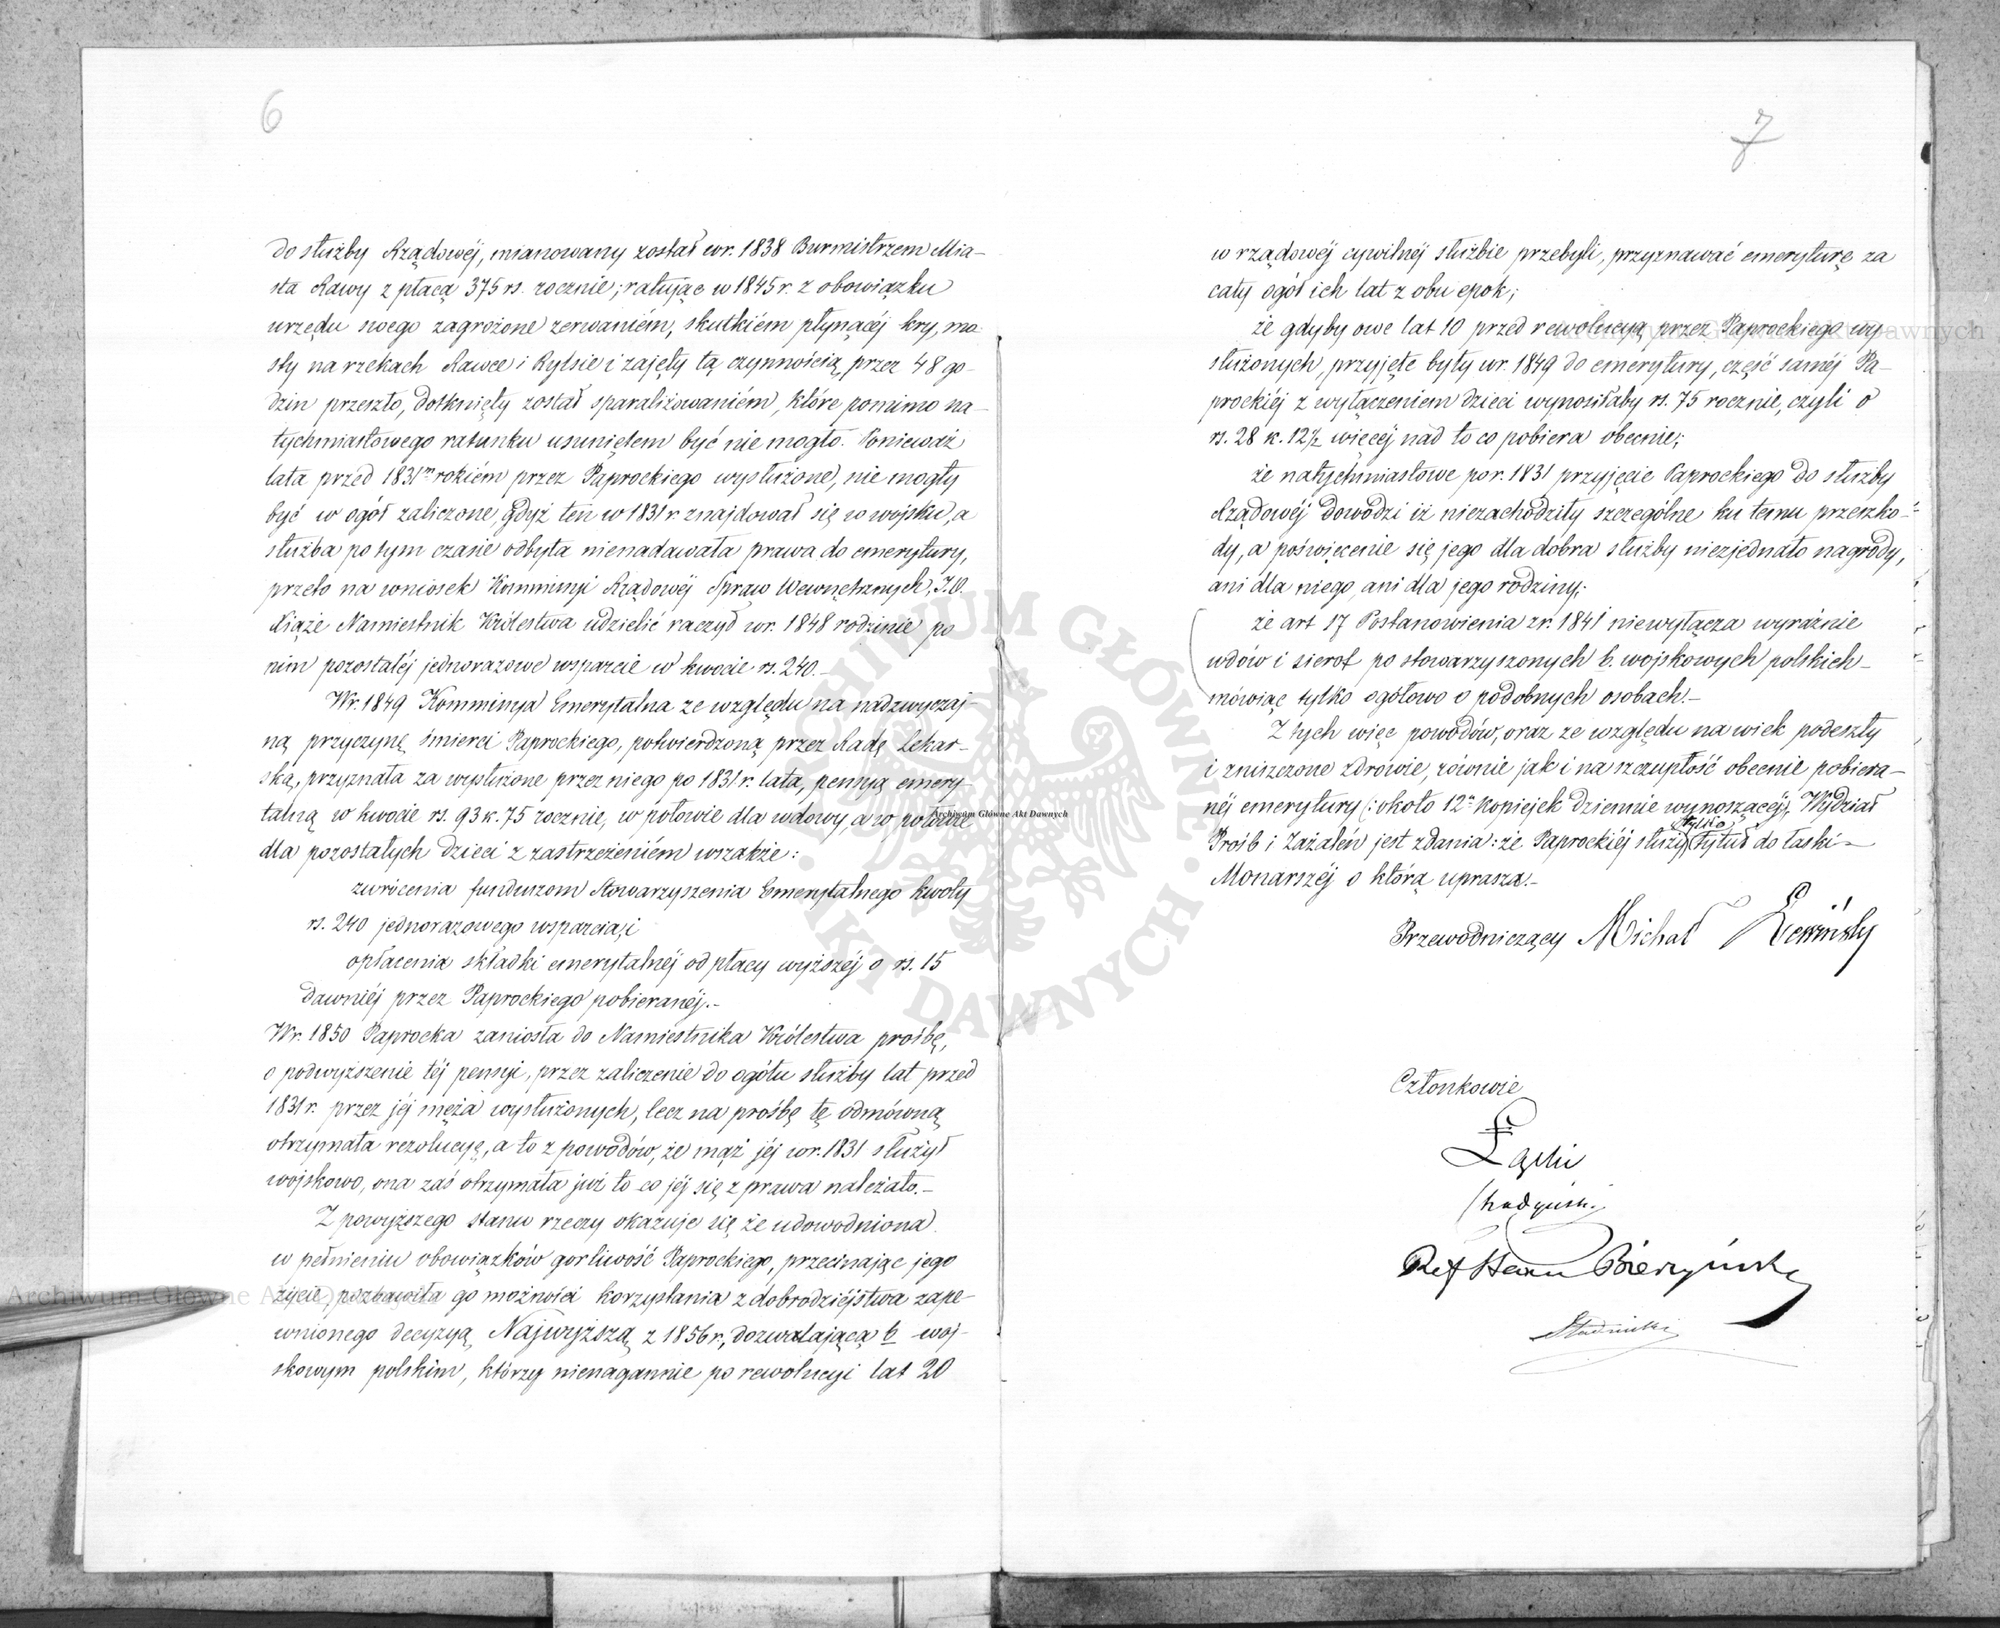 6
do służby Rządowéj, mianowany został wr. 1838 Burmistrzem Mia-
sta Rawy z płacą 375 rs. rocznie; ratując w 1845 r. z obowiązku
urzędu swego zagrożone zerwaniém, skutkiém płynącéj kry, mo-
sty na rzekach Rawce i Rylsie i zajęty tą czynnością, przez 48 go-
dzin przeszło, dotknięty został sparaliżowaniém, które pomimo na-
tychmiastowego ratunku usuniętem być nie mogło. Ponieważ
lata przed 1831m rokiém przez Paprockiego wysłużone, nie mogły
być w ogół zaliczone, gdyż ten w 1831 r. znajdował się w wojsku, a
służba po tym czasie odbyta nienadawała prawa do emerytury,
przeto na wniosek Kommissyi Rządowéj Spraw Wewnętrznych, J.O.
Xiąże Namiestnik Królestwa udzielić raczył wr. 1848 rodzinie po
nim pozostałéj jednorazowe wsparcie w kwocie rs. 240.-
Wr. 1849 Kommissya Emerytalna ze względu na nadzwyczaj-
ną przyczynę śmierci Paprockiego, potwierdzoną przez Radę Lekar-
ską, przyznała za wysłużone przez niego po 1831 r. lata, pensyą emery-
talną w kwocie rs. 93 k. 75 rocznie, w połowie dla wdowy, a w połowie
dla pozostałych dzieci z zastrzeżeniém wszakże:
zwrócenia funduszom Stowarzyszenia Emerytalnego kwoty
rs. 240 jednorazowego wsparcia, i
opłacenia składki emerytalnéj od płacy wyższéj o rs. 15
dawniéj przez Paprockiego pobieranéj.-
Wr. 1850 Paprocka zaniosła do Namiestnika Królestwa prośbę,
o podwyższenie téj pensyi, przez zaliczenie do ogółu służby lat przed
1831 r. przez jéj męża wysłużonych, lecz na prośbę tę odmówną
otrzymała rezolucyę, a to z powodów, że mąż jéj wr. 1831 służył
wojskowo, ona zaś otrzymała już to co jéj się z prawa należało.-
Z powyższego stanu rzeczy okazuje się że udowodniona
w pełnieniu obowiązków gorliwość Paprockiego, przecinając jego
życie, pozbawiła go możności korzystania z dobrodziéjstwa zape-
wnionego decyzyą Najwyższą z 1856 r., dozwalającą b. woj-
skowym polskim, którzy nienagannie po rewolucyi lat 20
7
w rządowéj cywilnéj służbie przebyli, przyznawać emeryturę za
cały ogół ich lat z obu epok;
że gdyby owe lat 10 przed rewolucyą przez Paprockiego wy-
służonych, przyjęte były wr. 1849 do emerytury, część saméj Pa-
prockiéj z wyłączeniem dzieci wynosiłaby rs. 75 rocznie, czyli o
rs. 28 k. 12½ więcéj nad to co pobiera obecnie;
że natychmiastowe po r. 1831 przyjęcie Paprockiego do służby
Rządowéj dowodzi iż niezachodziły szczególne ku temu przeszko-
dy, a poświęcenie się jego dla dobra służby niezjednało nagrody,
ani dla niego, ani dla jego rodziny;
że art 17 Postanowienia z r. 1841 niewyłącza wyraźnie
wdów i sierot po stowarzyszonych b. wojskowych polskich-
mówiąc tylko ogółowo o podobnych osobach.-
Z tych więc powodów, oraz ze względu na wiek podeszły
i zniszczone zdrowie, równie jak i na szczupłość obecnie pobiera-
néj emerytury (: około 12u kopiejek dziennie wynoszącéj:), Wydział
Prośb i Zażaleń jest zdania: że Paprockiéj służy tylko tytuł do łaski
Monarszéj o którą uprasza.-
Przewodniczący Michał
Członkowie
Łącki
Archiwum Główne Akt Dawnych
ARCHIWUM GŁÓWNE · AKT DAWNYCH ·
Archiwum Główne Akt Dawnych
Archiwum Główne Akt Dawnych